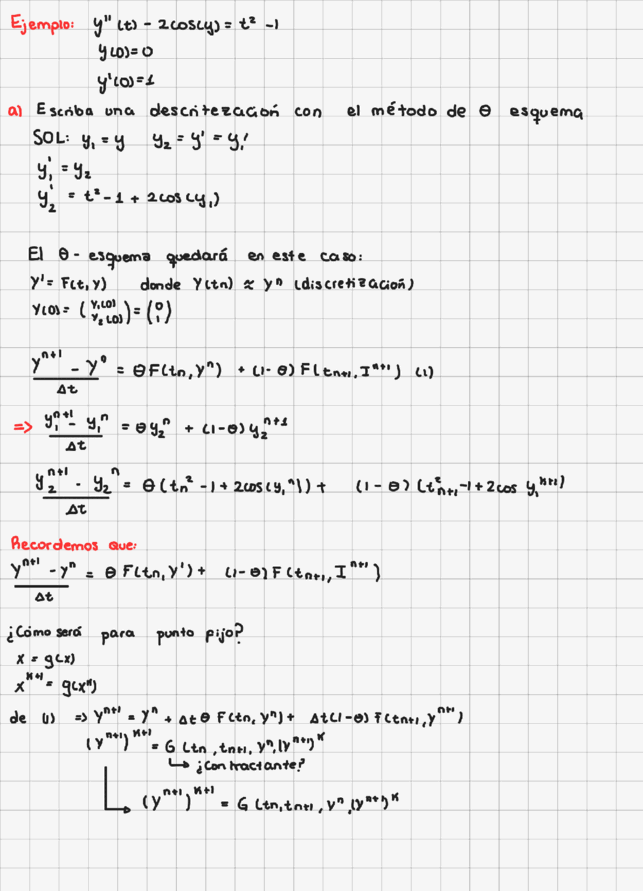 Ejemplo: y''(t) - 2cos(y) = t² - 1
y(0)=0
y'(0)=1
a) Escriba una descritezación con el método de θ esquema
SOL: y₁ = y   y₂ = y' = y₁'
y₁' = y₂
y₂' = t² - 1 + 2cos(y₁)
El θ- esquema quedará en este caso:
Y' = F(t, Y)   donde Y(tn) ≈ Yⁿ (discretización)
Y(0) = (y₁(0) y₂(0)) = (0 1)
(Yⁿ⁺¹ - Yⁿ)/Δt = θF(tn, Yⁿ) + (1-θ) F(tn+1, Iⁿ⁺¹) (1)
=> (y₁ⁿ⁺¹ - y₁ⁿ)/Δt = θy₂ⁿ + (1-θ)y₂ⁿ⁺¹
(y₂ⁿ⁺¹ - y₂ⁿ)/Δt = θ(tn² - 1 + 2cos(y₁ⁿ)) + (1-θ)(t²n+1 - 1 + 2cos y₁ⁿ⁺¹)
Recordemos que:
(Yⁿ⁺¹ - Yⁿ)/Δt = θ F(tn, Y') + (1-θ) F(tn+1, Iⁿ⁺¹)
¿Cómo será para punto pijo?
x = g(x)
xᴷ⁺¹ = g(xᴷ)
de (1) => Yⁿ⁺¹ = Yⁿ + Δt θ F(tn, Yⁿ) + Δt(1-θ) F(tn+1, Yⁿ⁺¹)
(Yⁿ⁺¹)ᴷ⁺¹ = G (tn, tn+1, Yⁿ, (Yⁿ⁺¹)ᴷ
↳ ¿Contractante?
↳ (Yⁿ⁺¹)ᴷ⁺¹ = G (tn, tn+1, Yⁿ, (Yⁿ⁺¹)ᴷ